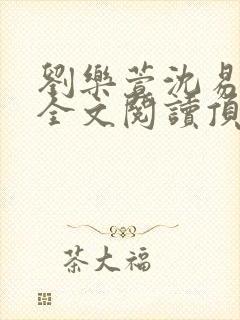 劉樂萱沈易
全文閱讀頂
茶大福